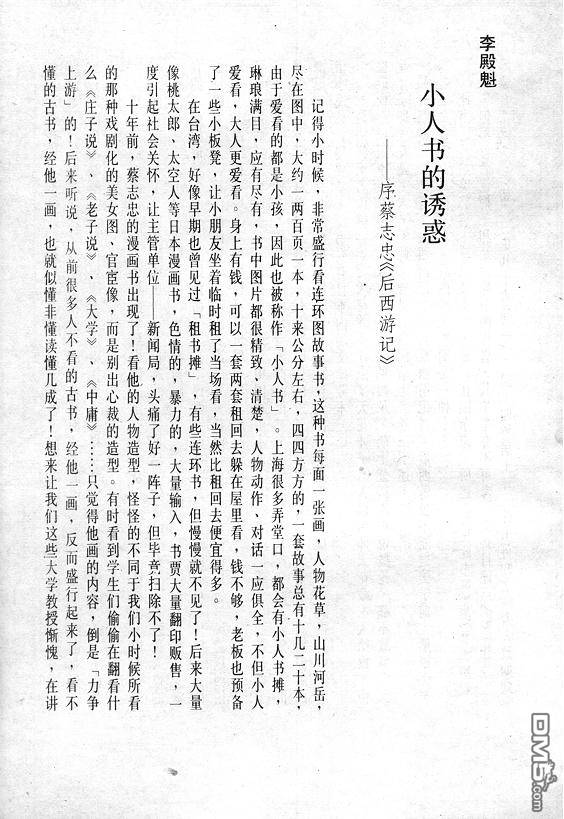 李殿魁
小人书的诱惑
——序蔡志忠《后西游记》
记得小时候，非常盛行看连环图故事书，这种书每面一张画，人物花草，山川河岳，
尽在图中，大约一两百页一本，十来公分左右，四四方方的，一套故事总有十几二十本，
由于爱看的都是小孩，因此也被称作「小人书」。上海很多弄堂口，都会有小人书摊，
琳琅满目，应有尽有，书中图片都很精致、清楚，人物动作、对话一应俱全，不但小人
爱看，大人更爱看。身上有钱，可以一套两套租回去躲在屋里看，钱不够，老板也预备
了一些小板凳，让小朋友坐着临时租了当场看，当然比租回去便宜得多。
在台湾，好像早期也曾见过「租书摊」，有些连环书，但慢慢就不见了！后来大量
像桃太郎、太空人等日本漫画书，色情的，暴力的，大量输入，书贾大量翻印贩售，一
度引起社会关怀，让主管单位——新闻局，头痛了好一阵子，但毕竟扫除不了！
十年前，蔡志忠的漫画书出现了！看他的人物造型，怪怪的不同于我们小时候所看
的那种戏剧化的美女图、官宦像，而是别出心裁的造型。有时看到学生们偷偷在翻看什
么《庄子说》、《老子说》、《大学》、《中庸》……只觉得他画的内容，倒是「力争
上游」的！后来听说，从前很多人不看的古书，经他一画，反而盛行起来了，看不
懂的古书，经他一画，也就似懂非懂读懂几成了！想来让我们这些大学教授惭愧，在讲
DM5.com